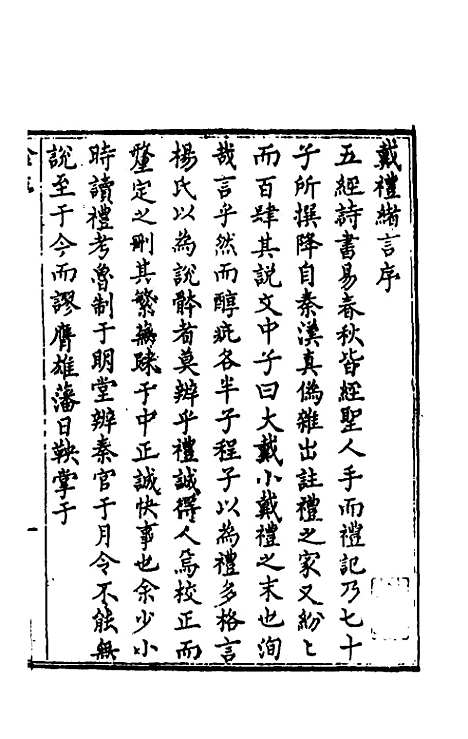 戴禮緒言序
五經詩書易春秋皆經聖人手而禮記乃七十
子所撰降自秦漢真僞雜出註禮之家又紛〻
而百肆其説文中子曰大戴小戴禮之末也洵
哉言乎然而醇疵各半子程子以為禮多格言
楊氏以為說骵者莫辦乎禮誠得人焉校正而
釐定之刪其繁蕪䟽于中正誠快事也余少小
時讀禮考魯制于明堂辦秦官于月令不能無
說至于今而謬膺雄藩日鞅掌于